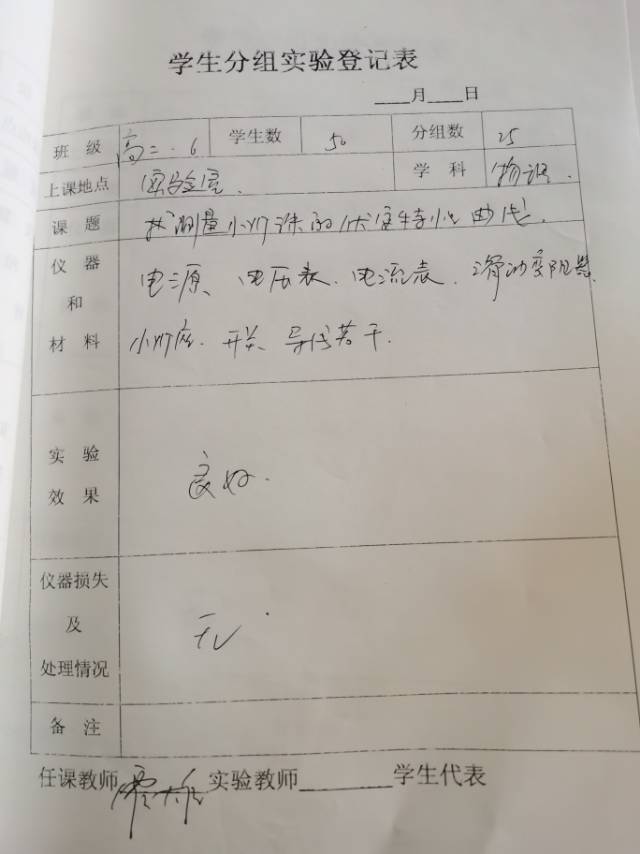 学生分组实验登记表
____月____日
班 级 高二.6 学生数 50 分组数 25
上课地点 实验室. 学 科 物理.
课 题 测量小灯泡的伏安特性曲线.
仪 器
和
材 料
电源、电压表.电流表.滑动变阻器.
小灯座.开关、导线若干.
实 验
效 果
良好.
仪器损失
及
处理情况
无
备 注
任课教师 实验教师________学生代表